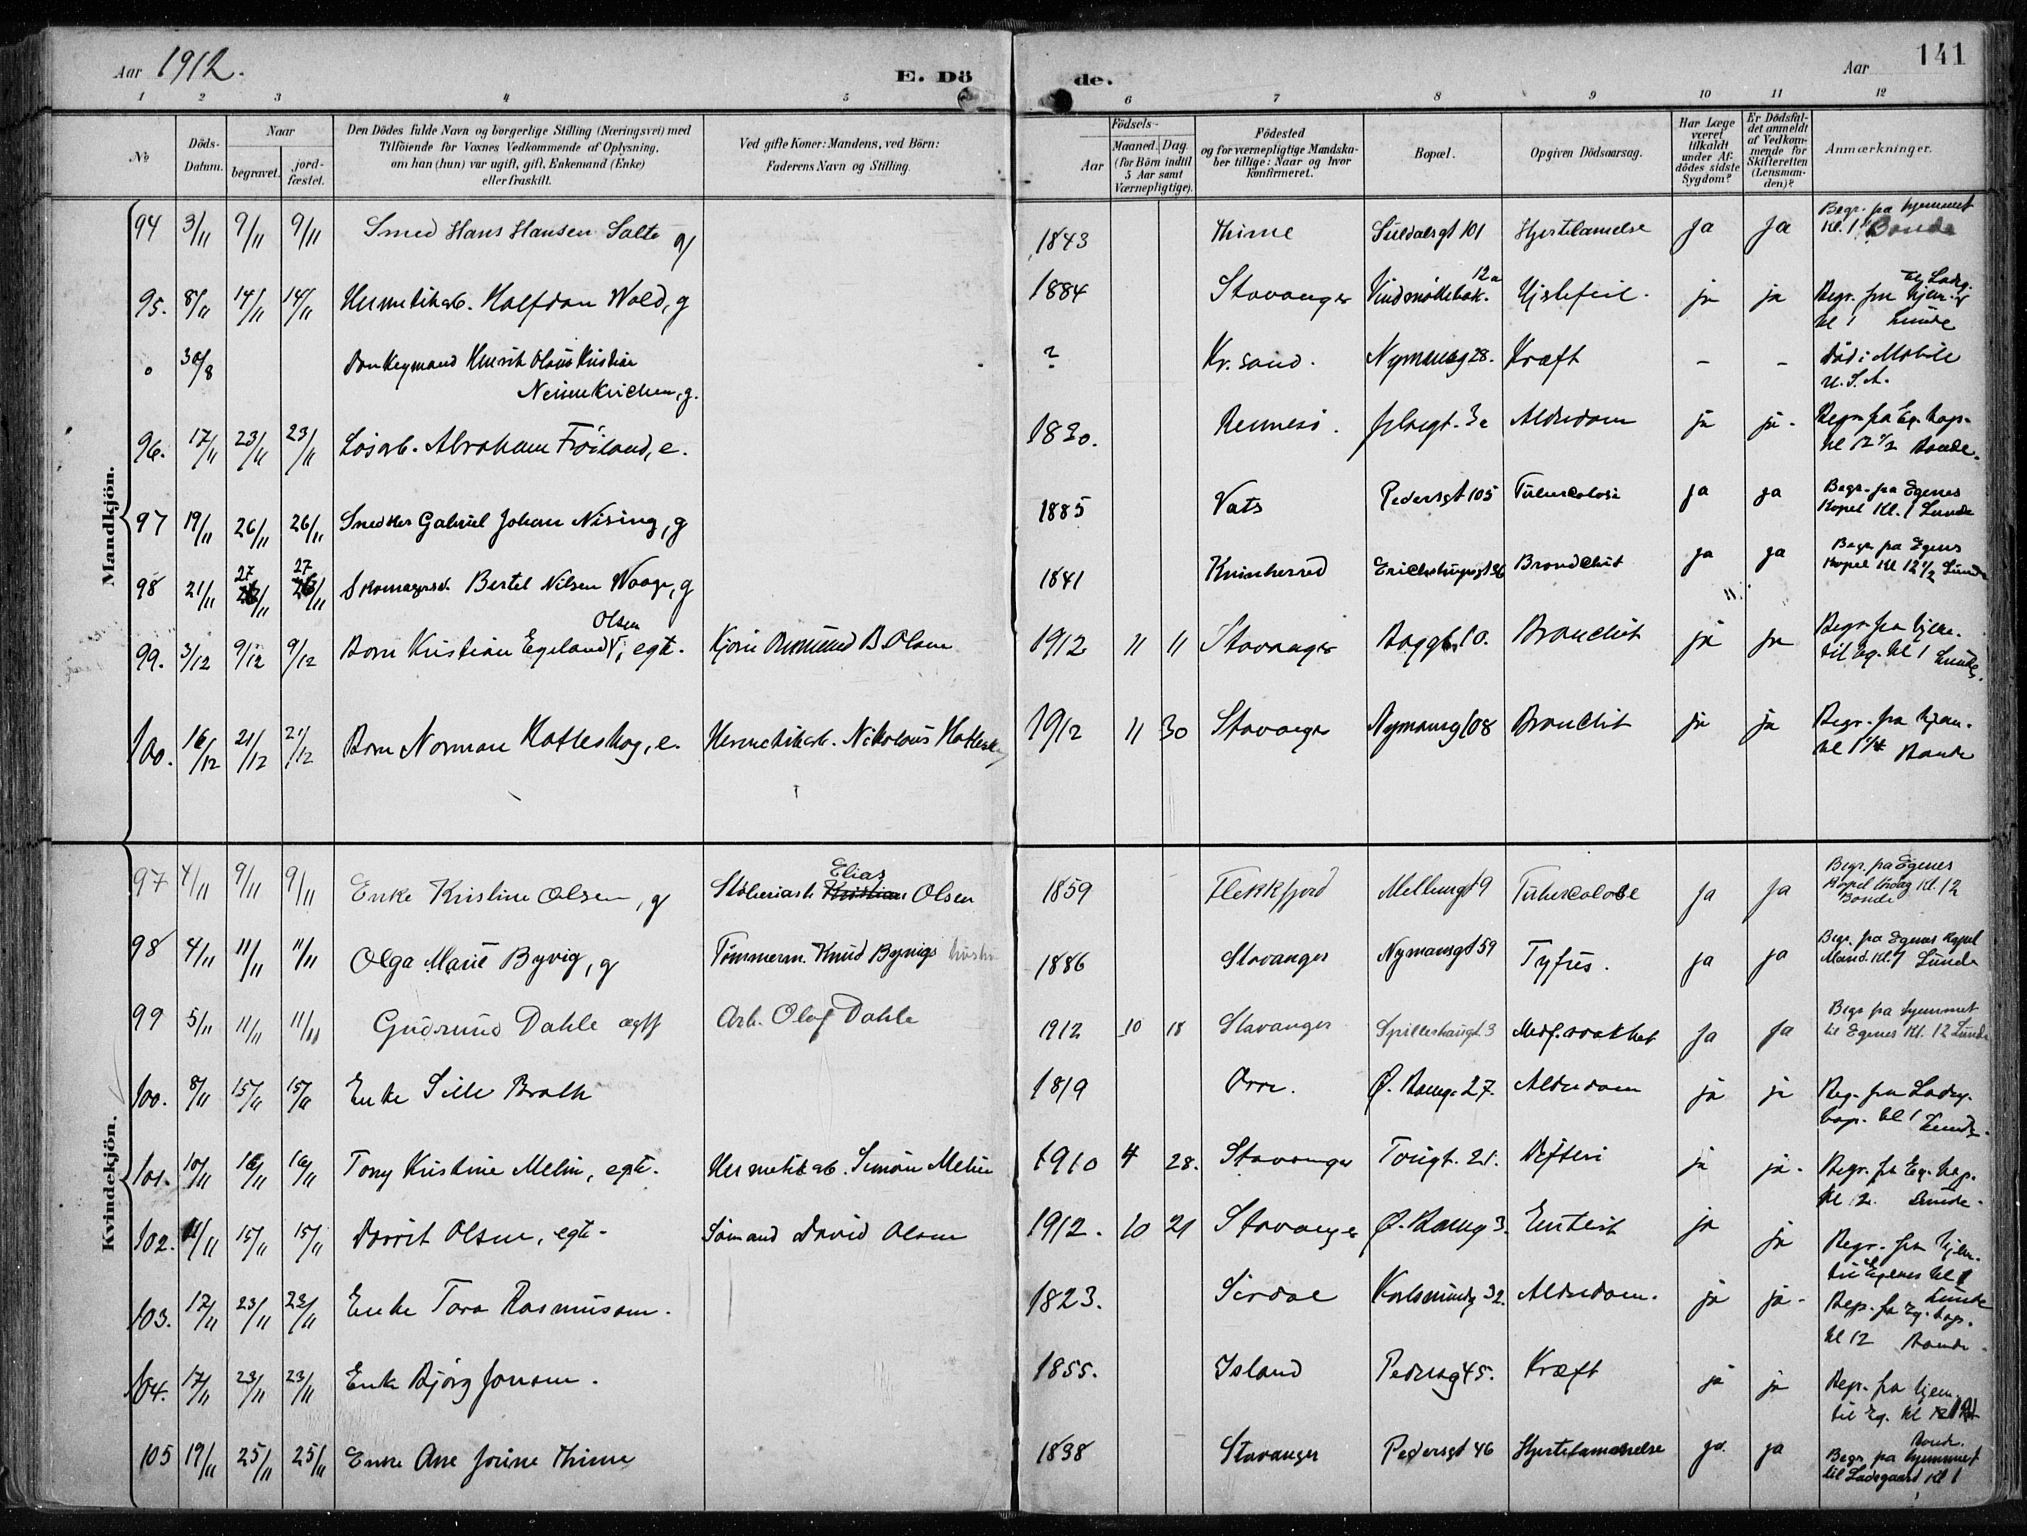 Aar 1912. E. Dö de. Aar 141
1 2 3 4 5 6 7 8 9 10 11 12
No
Döds-Datum.
Naar
begravet. jord-fæstet.
Den Dödes fulde Navn og borgerlige Stilling (Næringsvei) med
Tilföiende for Voxnes Vedkommende af Oplysning,
om han (hun) var ugift, gift, Enkemand (Enke)
eller fraskilt.
Ved gifte Koner: Mandens, ved Börn:
Faderens Navn og Stilling.
Födsels-
Aar Maaned. Dag.
(for Börn indtil
5 Aar samt
Værnepligtige).
Födested
og for værnepligtige Mandska-
ber tillige: Naar og hvor
konfirmeret.
Bopæl.
Opgiven Dödsaarsag.
Har Læge
været
tilkaldt
under Af-
dödes sidste
Sygdom?
Er Dödsfal-
det anmeldt
af Vedkom-
mende for
Skifteretten
(Lensman-
den)?
Anmærkninger.
Mandkjön.
94 3/11 9/11 9/11 Smed Hans Hansen Salte g 1843 Thime Suldalsgt 101 Hjertelamelse Ja Ja Begr. fra hjemmet
Kl. 1 Bonde
95. 8/11 14/11 14/11 Hermetikarb. Halfdan Wold, g 1884 Stavanger Vindmøllebak. 12a Hjertefeil. ja ja Begr. fra hjem. til Ladg.
kl 1 Lunde
30/8 Donkeymand Henrik Olaus Kristian
Neinnkirchen, g. ? Kr.sand. Nymansg 28. Kræft – – Död i Mobile
U.S.A.
96. 17/11 23/11 23/11 Løsarb. Abraham Frøiland, e. 1830. Rennesø. 3a Alderdom ja ja. Begr. fra Eg. kap.
kl 12 1/2 Bonde.
97 19/11 26/11 26/11 Gabriel Johan Nising, g 1885 Vats Pedersgt 105 Tuberculose ja ja Begr. fra Egenes
Kapel Kl. 1 Lunde
98 21/11 27/11 27/11 Skomagersv. Bertel Nilsen Waage, g 1841 Kvinherred Erichstrupsgt 36 Bronchit ja ja Begr. fra Egenes
Kapel Kl 12 1/2 Lunde
99. 3/12 9/12 9/12 Barn Kristian Egeland Olsen, egte. B Olsen 1912 11 11 Stavanger 10. Bronchit ja ja Begr. fra hjem.
til Eg. kl 1 Lunde.
100. 16/12 21/12 21/12 Barn Norman Hatleskog, e. Hermetikarb. Nikolaus Hatleskog 1912 11 30 Stavanger Nymansg 108 Bronchit ja ja Begr. fra hjem.
kl 1 1/4 Bonde
Kvindekjön.
97 4/11 9/11 9/11 Enke Kristine Olsen, g Elias Kristian Olsen 1859 Flekkfjord Mellumgt 9 Tuberculose Ja Ja Begr. fra Egenes
Kapel Kl. 12
Bonde
98 4/11 11/11 11/11 Olga Marie Byvig, g Tømmerm. Knud Byvigs hustru 1886 Stavanger Nymansgt 59 Tyfus. ja ja Begr. fra Egenes Kapel
Mand. Kl. 1 Lunde
99 5/11 11/11 11/11 Gudrund Dahle ægtf Arb. Olaf Dahle 1912 10 18 Stavanger Spilderhaugt 3 Medf. svakhet Ja Ja Begr fra hjemmet
til Egenes Kl. 12 Lunde
100. 8/11 15/11 15/11 Enke Sille Brath 1819 Orre. Ø. Baneg. 27. Alderdom ja ja Beg. fra Ladeg.
kap. kl 1 Lunde.
101. 10/11 16/11 16/11 Tony Kristine Melin, egte. Hermetikarb. Simon Melin 1910 4 28. Stavanger Torigt. 21. Difteri ja ja. Begr. fra Eg. kap.
kl 12. Lunde.
102. 11/11 15/11 15/11 Dorrit Olsen, egte. Sömand David Olsen 1912. 10 21 Stavanger Ø. Baneg 3. Enterit ja ja Begr. fra hjem.
til Egenes kl 1
Lunde
103. 17/11 23/11 23/11 Enke Tora Rasmussen. 1823. Sirdal Karlsmindeg 32. Alderdom. ja ja. Begr. fra Eg. kap.
kl 12 Bonde.
104. 17/11 23/11 23/11 Enke Bjørg Jonsen. 1855. Island Pedersg 45. Kræft ja ja Begr. fra hjem.
til Eg. kl
Bonde.
105 19/11 25/11 25/11 Enke Ane Jorine Thime 1838 Stavanger Pedersgt 46 Hjertelamelse ja. ja Begr. fra hjemmet
til Ladegaard Kl 1